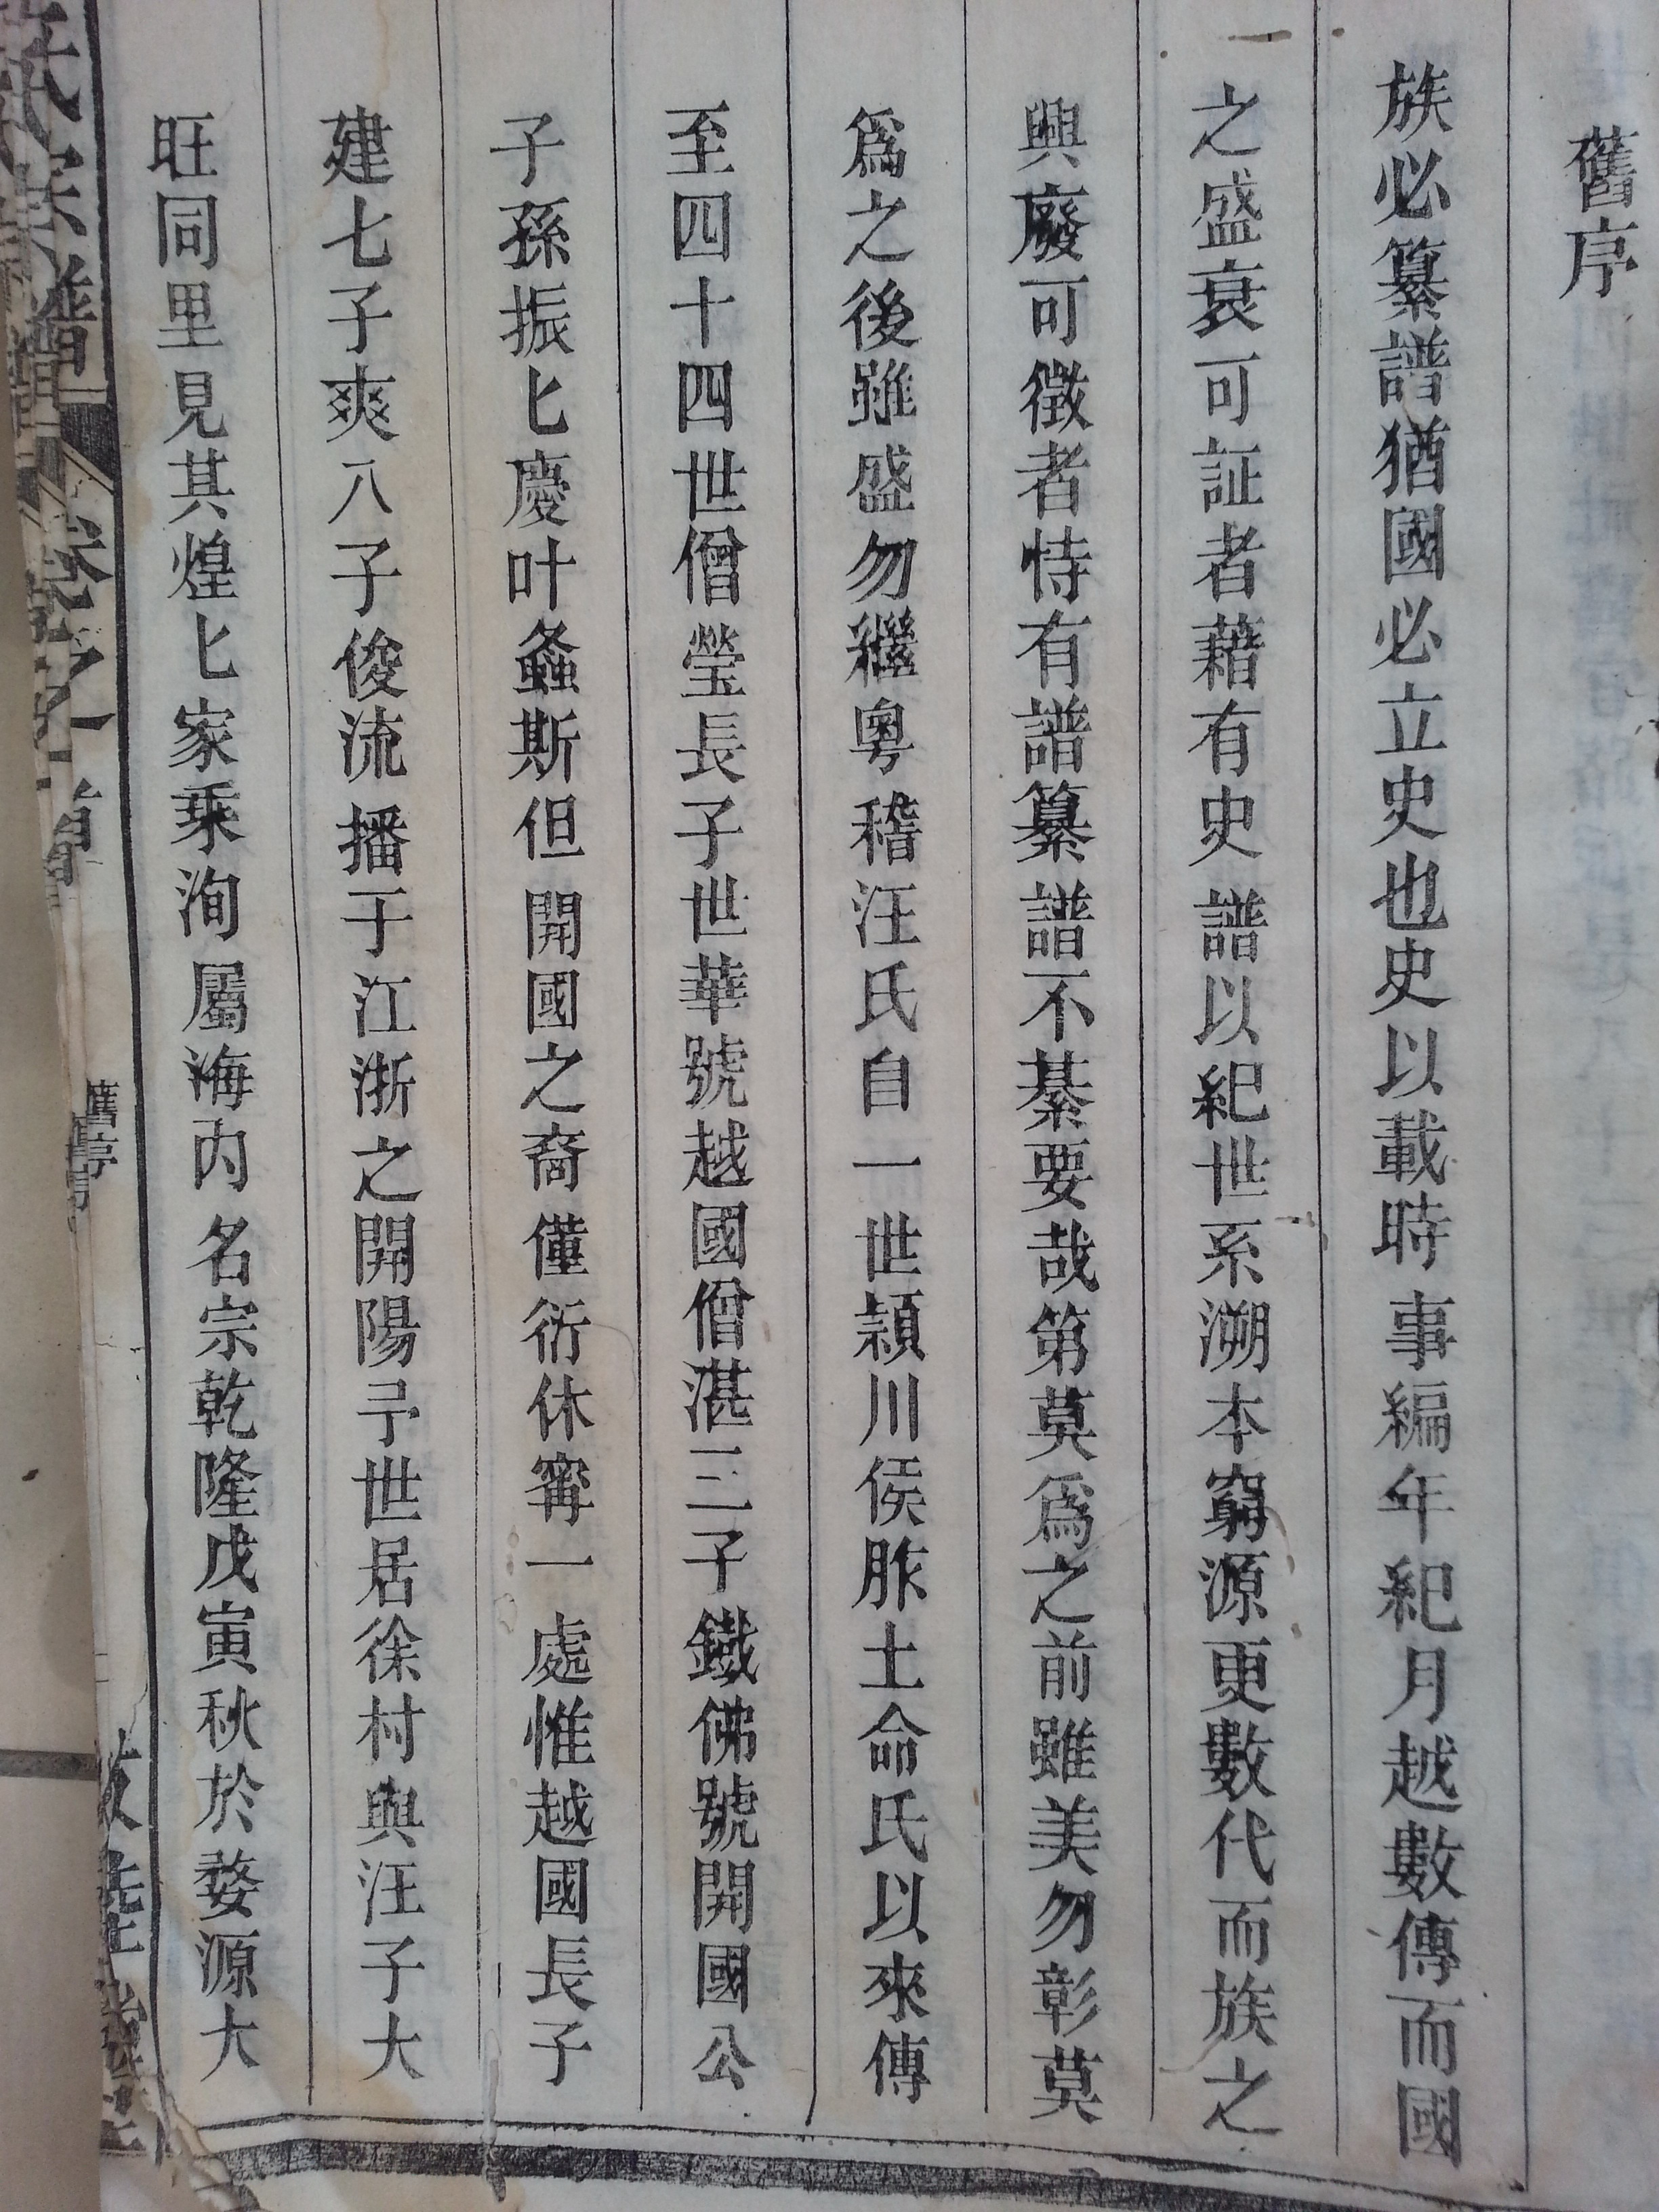 舊序
族必纂譜猶國必立史也史以載時事編年紀月越數傳而國
之盛衰可証者藉有史譜以紀世系溯本窮源更數代而族之
興廢可徵者恃有譜纂譜不綦要哉第莫爲之前雖美勿彰莫
爲之後雖盛勿繼粵稽汪氏自一世潁川侯胙土命氏以來傳
至四十四世僧瑩長子世華號越國僧湛三子鐵佛號開國公
子孫振匕慶叶螽斯但開國之裔僅衍休寗一處惟越國長子
建七子爽八子俊流播于江浙之開陽予世居徐村與汪子大
旺同里見其煌匕家乘洵屬海內名宗乾隆戊寅秋於婺源大
氏宗譜 卷之首 舊序